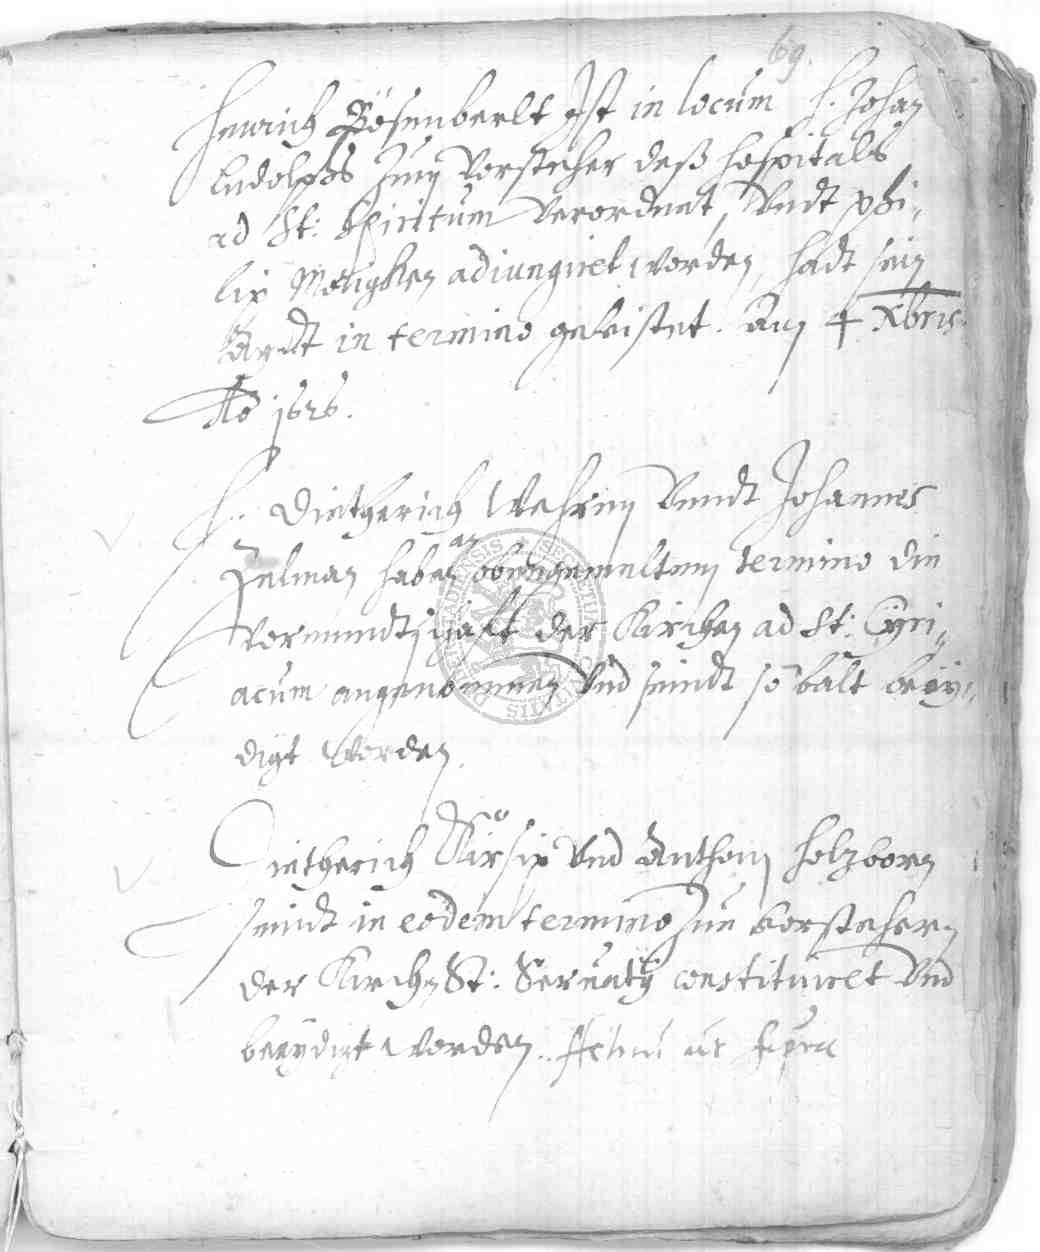 69.
Henrich Bösenberlt Ist in locum H. Johan
Ludolphs Zum Vorsteher deß hospitals
ad St: Spiritum verordnet, Vndt phi-
lip adiungiret worden, hadt sein
Aydt in termino geleistet. Am 4 Xbris
Ao 1626.
H. Dietherich Wehren Vnndt Johannes
Zelman haben an obengemeltem termino die
vormundtschafft der Kirchen ad St: Cyri-
acum angenommen Vnd seindt so balt beey-
digt worden.
Dietherich Vnd Anthon Holzborn
seindt in eodem termino Zue vorstehern
der Kirchen St: Seruatij constituiret Vnd
beeydigt worden. Actum ut supra